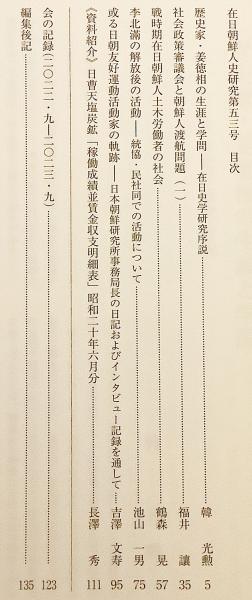 在日朝鮮人史研究第五三号　目次
歴史家・姜徳相の生涯と学問――在日史学研究序説……韓　光勲　5
社会政策審議会と朝鮮人渡航問題（一）……福井　譲　35
戦時期在日朝鮮人土木労働者の社会……鶴森　晃　57
李北満の解放後の活動――統協・民社同での活動について……池山　一男　75
或る日朝友好運動活動家の軌跡――日本朝鮮研究所事務局長の日記およびインタビュー記録を通して……吉澤　文寿　95
《資料紹介》日曹天塩炭鉱「稼働成績並賃金収支明細表」昭和二十年六月分……長澤　秀　111
会の記録（二〇二二・九―二〇二三・九）……123
編集後記……135